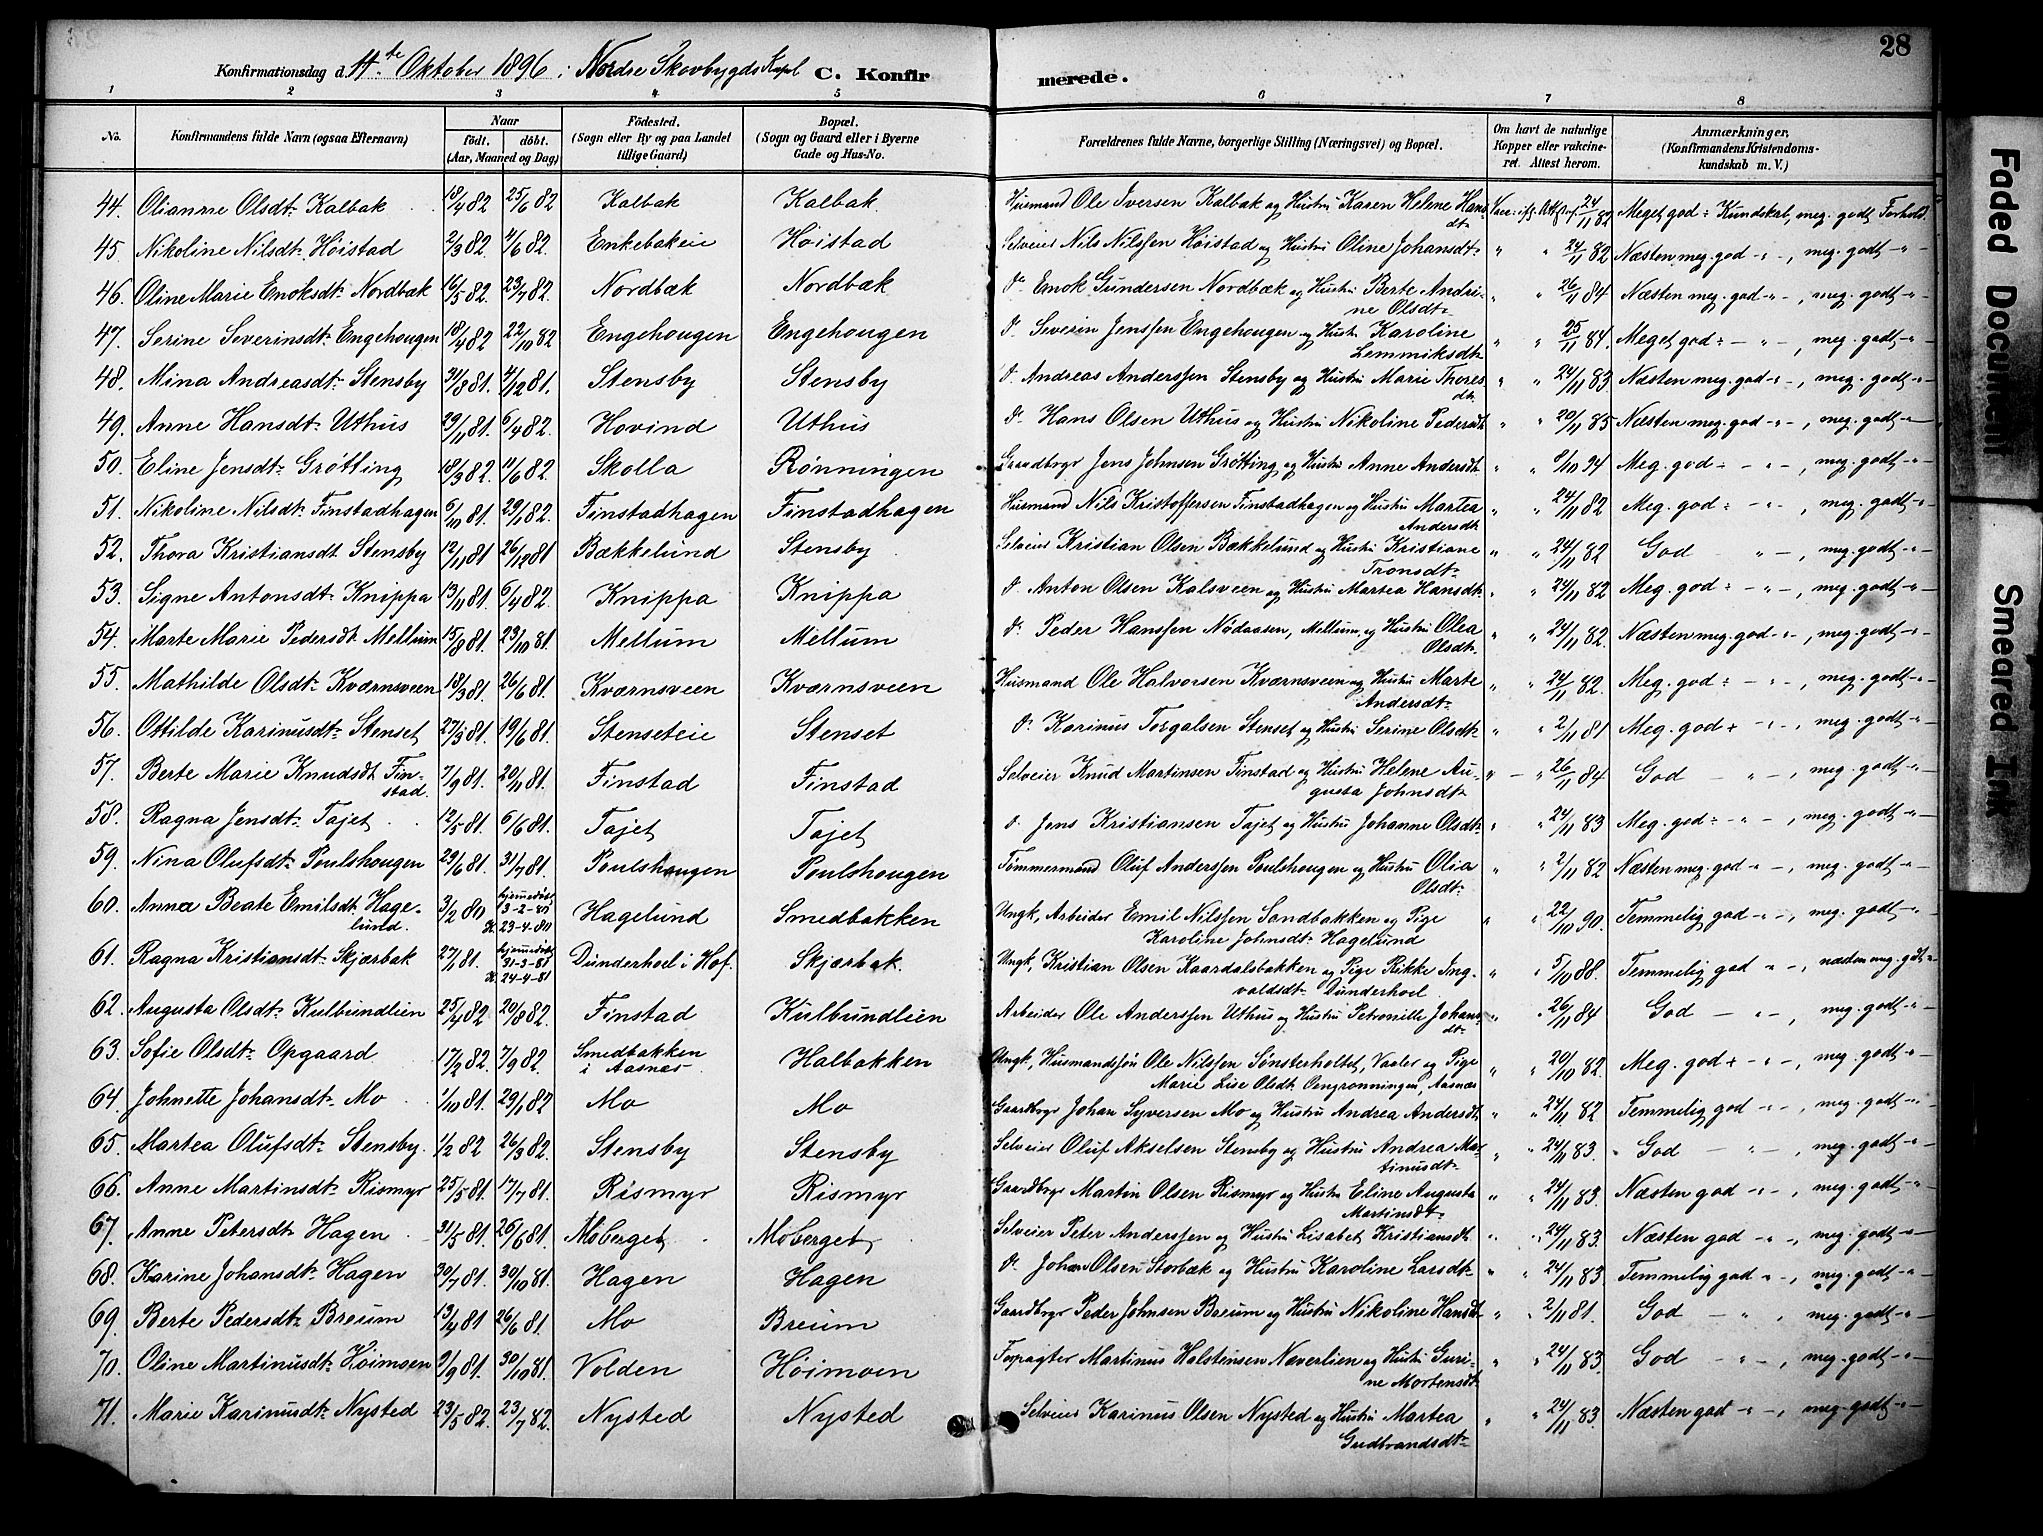 28
Konfirmationsdag d. 4de Oktober 1896 i Nordre Skovbygds Kapl C. Konfirmerede.
1 2 3 4 5 6 7 8
No. Konfirmandens fulde Navn (ogsaa Efternavn) Naar født. døbt. (Aar, Maaned og Dag) Fødested. (Sogn eller By og paa Landet tillige Gaard) Bopæl. (Sogn og Gaard eller i Byerne Gade og Hus-No. Forældrenes fulde Navne, borgerlige Stilling (Næringsvei) og Bopæl. Om havt de naturlige Kopper eller vakcineret. Attest herom. Anmærkninger. (Konfirmandens Kristendomskundskab m. V.)
44. Olianne Olsdt. Kalbak 18/4 82 25/6 82 Kalbak Kalbak Husmand Ole Iversen Kalbak og Hustru Karen Helene Hansdt. Vacc. 24/11 82 Meget god Kundskab, meg. godt Forhold
45 Nikoline Nilsdt. Høistad 2/3 82 4/6 82. Enkebakeie Høistad Selveier Nils Nilssen Høistad og Hustru Oline Johansdt. " " 24/11 82 Næsten meg. god -"-, meg. godt -"-
46. Oline Marie Enoksdt. Nordbæk 16/5 82. 23/7 82. Nordbæk Nordbæk do Enok Gundersen Nordbæk og Hustru Berte Andrine Olsdt. " " 26/11 84 Næsten meg. god -"-, meg. godt -"-
47. Serine Severinsdt. Engehougen 18/4 82 22/10 82 Engehougen Engehougen do Severin Jenssen Engehougen og Hustru Karoline Lemmiksdt. " " 25/11 84. Meget god -"-, meg. godt -"-
48. Mina Andreasdt. Stensby 31/8 81. 4/12 81. Stensby Stensby do Andreas Anderssen Stensby og Hustru Marie Thoresdt. " " 24/11 83 Næsten meg. god -"-, meg. godt -"-
49. Anne Hansdt. Uthus 29/11 81. 6/4 82. Hovind Uthus do Hans Olsen Uthus og Hustru Nikoline Pedersdt. " " 20/11 85 Næsten meg. god -"-, meg. godt -"-
50. Eline Jensdt. Grøtting 18/3 82. 11/6 82. Skolla Rønningen Gaardbrgr Jens Johnsen Grøtting og Hustru Anne Andersdt. " " 8/10 94 Meg. god -"-, meg. godt -"-
51. Nikoline Nilsdt. Finstadhagen 6/10 81. 29/1 82. Finstadhagen Finstadhagen Husmand Nils Kristoffersen Finstadhagen og Hustru Martea Andersdt. " " 24/11 82 Meg. god -"-, meg. godt -"-
52. Thora Kristiansdt. Stensby 12/11 81 26/12 81 Bækkelund Stensby Selveier Kristian Olsen Bækkelund og Hustru Kristiane Tronsdt. " " 24/11 82 God -"-, meg. godt -"-
53. Signe Antonsdt. Knippa 13/11 81. 6/4 82. Knippa Knippa do Anton Olsen Kalsveen og Hustru Martea Hansdt. " " 24/11 82 Meg. god -"-, meg. godt -"-
54. Marte Marie Pedersdt. Mellum 15/8 81. 23/10 81. Mellum Mellum do Peder Hanssen Nødaasen, Mellum, og Hustru Olea Olsdt. " " 24/11 82. Næsten meg. god -"-, meg. godt -"-
55. Mathilde Olsdt. Kværnsveen 18/3 81. 26/6 81. Kværnsveen Kværnsveen Husmand Ole Halvorsen Kværnsveen og Hustru Marte Andersdt. " " 24/11 82. Meg. god -"-, meg. godt -"-
56. Ottilde Karinusdt. Stenset 27/3 81. 19/6 81. Stenseteie Stenset do Karinus Torgalsen Stenset og Hustru Serine Olsdt. " " 2/11 81 Meg. god -"-, meg. godt -"-
57. Berte Marie Knudsdt. Finstad. 7/9 81. 20/11 81. Finstad Finstad Selveier Knud Martinsen Finstad og Hustru Helene Augusta Johnsdt. " - " 26/11 84 God -"-, meg. godt -"-
58. Ragna Jensdt. Tajet 12/5 81. 6/6 81. Tajet Tajet do Jens Kristiansen Tajet og Hustru Johanne Olsdt. " " 24/11 83 Meg. god -"-, meg. godt -"-
59. Nina Olufsdt. Poulshougen 29/6 81. 31/7 81. Poulshougen Poulshougen Tømmermand Oluf Anderssen Poulshougen og Hustru Olia Olsdt. " " 2/11 82 Næsten meg. god -"-, meg. godt -"-
60. Anna Beate Emilsdt. Hagelund. 3/2 80 hjemmedøbt 3-2-80 K. 23-4-80 Hagelund Smedbakken Ungk, Arbeider Emil Nilssen Sandbakken og Pige Karoline Johnsdt. Hagelund " " 22/10 90. Temmelig god -"-, meg. godt -"-
61. Ragna Kristiansdt. Skjærbak 27/1 81. hjemmedøbt 31-3-81 K. 24-4-81 Dunderhoel i Hof. Skjærbak. Ungk, Kristian Olsen Kaardalsbakken og Pige Rikke Ingvaldsdt. Dunderhoel " " 5/10 88. Temmelig god -"-, næsten meg. godt -"-
62. Augusta Olsdt. Kulbundlien 25/4 82 20/8 82. Finstad Kulbundlien Arbeider Ole Anderssen Uthus og Hustru Petronille Johansdt. " " 26/11 84 God -"-, meg. godt -"-
63. Sofie Olsdt. Opgaard 17/2 82. 7/9 82. Smedbakken i Aasnes. Halbakken Ungk, Husmandssøn Ole Nilssen Sønsterholtet, Vaaler og Pige Marie Lise Olsdt. Oengrønningen, Aasnæs " " 20/10 82. Meg. god -"-, meg. godt -"-
64. Johnette Johansdt. Mo 1/10 81. 29/1 82 Mo Mo Gaardbrgr Johan Syversen Mo og Hustru Andrea Andersdt. " " 24/11 82 Temmelig god -"-, meg. godt -"-
65. Martea Olufsdt. Stensby. 1/2 82 26/3 82. Stensby Stensby Selveier Oluf Akselsen Stensby og Hustru Andrea Martinusdt. " " 24/11 83. God -"-, meg. godt -"-
66. Anne Martinsdt. Rismyr 25/5 81. 17/7 81. Rismyr Rismyr Gaardbrgr Martin Olsen Rismyr og Hustru Eline Augusta Martinsdt. " " 24/11 83. Næsten god -"-, meg. godt -"-
67. Anne Petersdt. Hagen 31/5 81. 26/6 81. Moberget Moberget Selveier Peter Anderssen og Hustru Lisabet Kristiansdt. " " 24/11 83. Næsten god -"-, meg. godt -"-
68. Karine Johansdt. Hagen 20/7 81. 30/10 81. Hagen Hagen do Johan Olsen Storbæk og Hustru Karoline Larsdt. " " 24/11 83. Temmelig god -"-, meg. godt -"-
69. Berte Pedersdt. Breum 13/4 81 26/6 81. Mo Breum Gaardbrgr Peder Johnsen Breum og Hustru Nikoline Hansdt. " " 2/11 81. God - ", meg. godt -"-
70. Oline Martinusdt. Høimoen 9/9 81. 30/10 81. Volden Høimoen Forpagter Martinus Halstensen Næverlien og Hustru Gurine Mortensdt. " " 24/11 83. God -"-, meg. godt -"-
71. Marie Karinusdt. Nysted 23/5 82. 23/7 82. Nysted Nysted Selveier Karinus Olsen Nysted og Hustru Martea Gudbrandsdt. " " 24/11 83. Næsten god -"-, meg. godt -"-
Faded Document
Smeared Ink